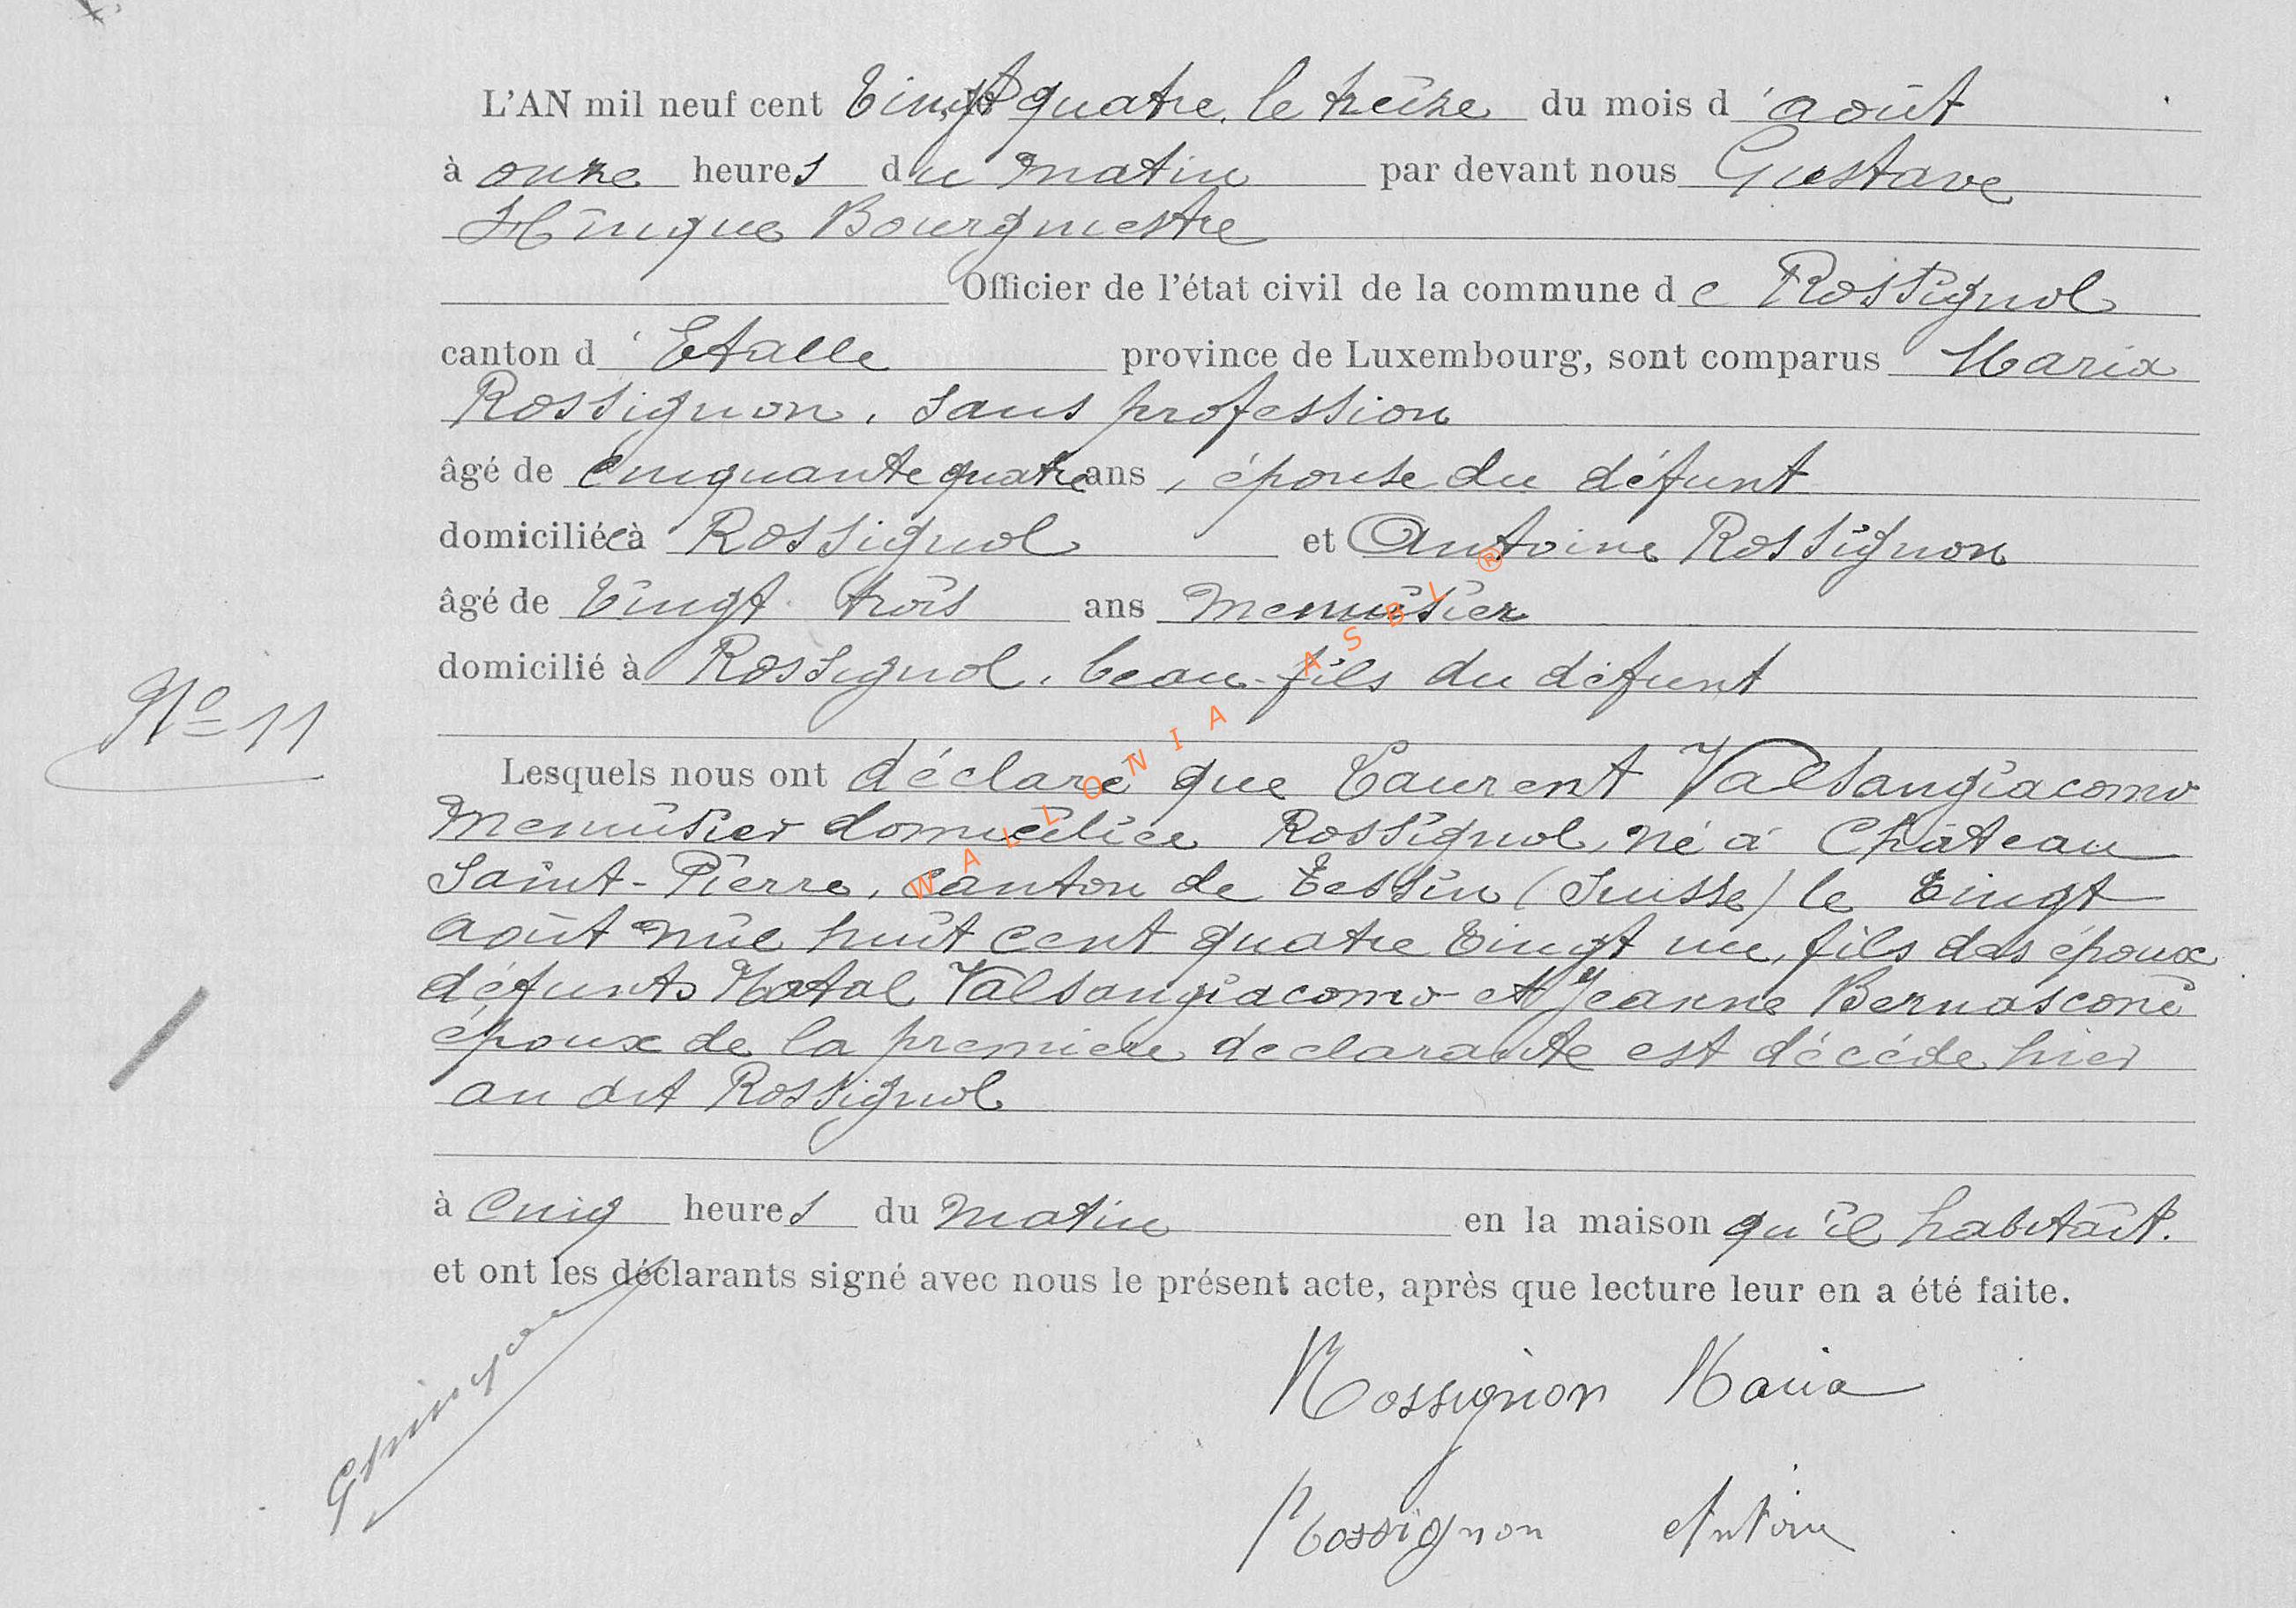 L'AN mil neuf cent Vingt quatre, le treize du mois d'août
à onze heures du matin par devant nous Gustave
Hinque Bourgmestre
Officier de l'état civil de la commune de Rossignol
canton d'Etalle province de Luxembourg, sont comparus Maria
Rossignon, sans profession
âgé de cinquante quatre ans, épouse du défunt
domiciliée à Rossignol et Antoine Rossignon
âgé de Vingt trois ans Menuisier
domicilié à Rossignol, beau-fils du défunt
N° 11
Lesquels nous ont déclaré que Laurent Valsangiacomo
Menuisier domicilié à Rossignol, né à Château
Saint-Pierre, canton de Tessin (Suisse) le Vingt
août mil huit cent quatre Vingt un, fils des époux
défunts Natal Valsangiacomo et Jeanne Bernasconi
époux de la première declarante est décédé hier
au dit Rossignol
à Cinq heures du Matin en la maison qu'il habitait.
et ont les déclarants signé avec nous le présent acte, après que lecture leur en a été faite.
GHinque
Rossignon Maria
Rossignon Antoine
WALLONIA ASBL ®